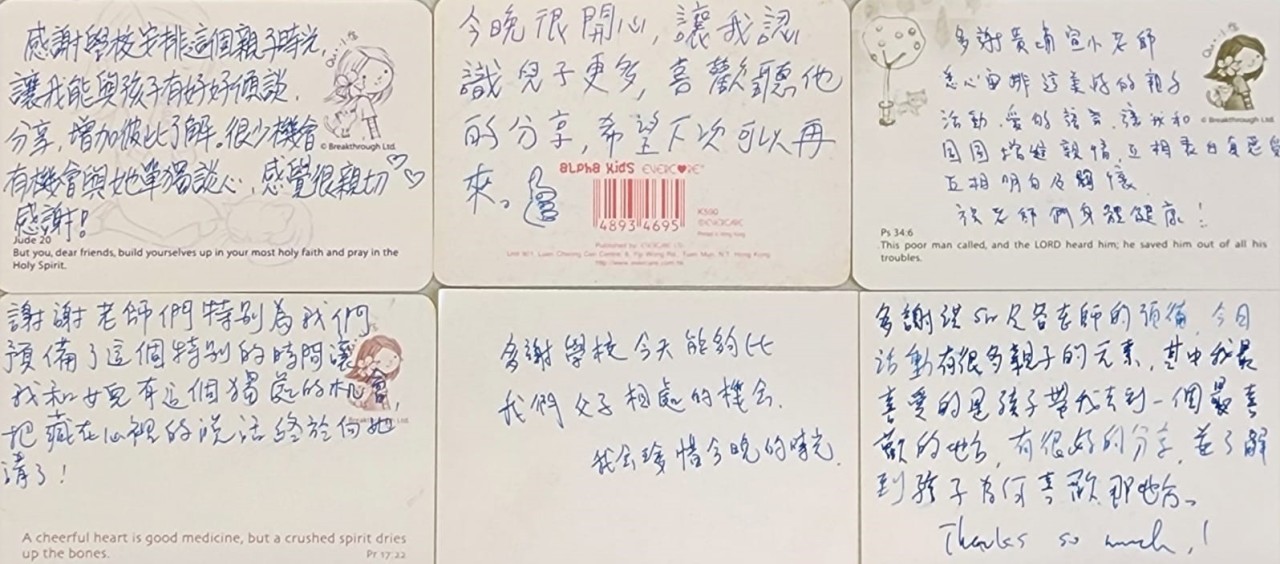 感謝學校安排這個親子時光,
讓我能與孩子有好好傾談,
分享,增加彼此了解。很少機會
有機會與她單獨談心,感覺很親切♡♡
感謝!
© Breakthrough Ltd.
Jude 20
But you, dear friends, build yourselves up in your most holy faith and pray in the
Holy Spirit.
今晚很開心,讓我認
識兒子更多,喜歡聽他
的分享,希望下次可以再
來。
alpha kids EVERCARE
4893 4695
多謝貴 宣小老師
悉心安排這美好的親子
活動,愛的語言,讓我和
囝囝增進親情,互相表白
互相明白及關懷.
祝老師們身體健康!
© Breakthrough Ltd.
Ps 34:6
This poor man called, and the LORD heard him; he saved him out of all his
troubles.
謝謝老師們特別為我們
預備了這個特別的時間讓
我和女兒有這個獨處的機會,
把藏在心裡的說話終於向她
講了!
A cheerful heart is good medicine, but a crushed spirit dries
up the bones.
Pr 17:22
多謝學校今天能給比
我們父子相處的機会.
我会珍惜今晚的時光.
多謝洪sir及各老師的預備,今日
活動有很多親子的元素,其中我最
喜愛的是孩子帶我去到一個最喜
歡的地方,有很好的分享,並了解
到孩子為何喜歡那地方。
Thanks so much!